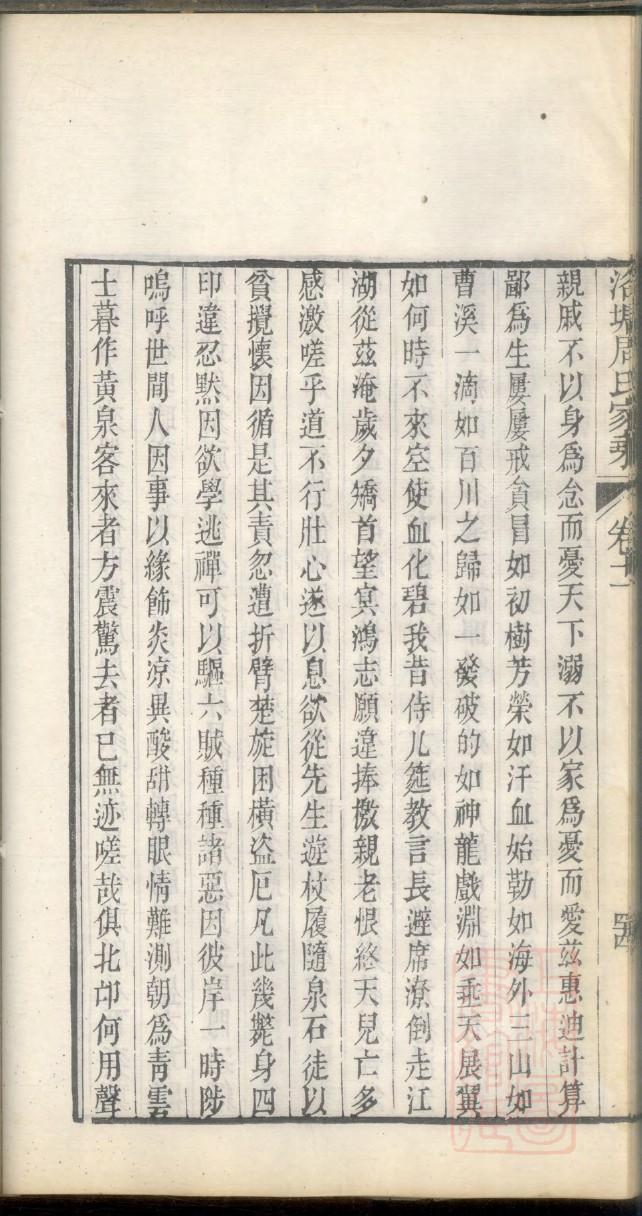 洛塘周氏家乘 卷十一 四
親戚不以身爲念而憂天下溺不以家爲憂而愛茲惠迪計算
鄙爲生屢屢戒貪冒如初樹芳榮如汗血始勒如海外三山如
曹溪一滴如百川之歸如一發破的如神龍戲淵如乖天展翼
如何時不來空使血化碧我昔侍几筵教言長避席潦倒走江
湖從茲淹歲夕矯首望㝠鴻志願違捧檄親老恨終天兒亡多
感激嗟乎道不行壯心遂以息欲從先生遊杖履隨泉石徒以
貧攪懷因循是其責忽遭折臂楚旋困橫盗厄凡此幾斃身四
印違忍默因欲學逃禪可以驅六賊種種諸惡因彼岸一時陟
嗚呼世間人因事以緣飾炎凉異酸甜轉眼情難測朝爲靑雲
士暮作黃泉客來者方震驚去者已無迹嗟哉俱北邙何用聲